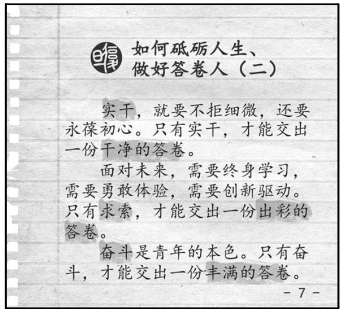 如何砥砺人生、
做好答卷人（二）
实干，就要不拒细微，还要
永葆初心。只有实干，才能交出
一份干净的答卷。
面对未来，需要终身学习，
需要勇敢体验，需要创新驱动。
只有求索，才能交出一份出彩的
答卷。
奋斗是青年的本色。只有奋
斗，才能交出一份丰满的答卷。
- 7 -